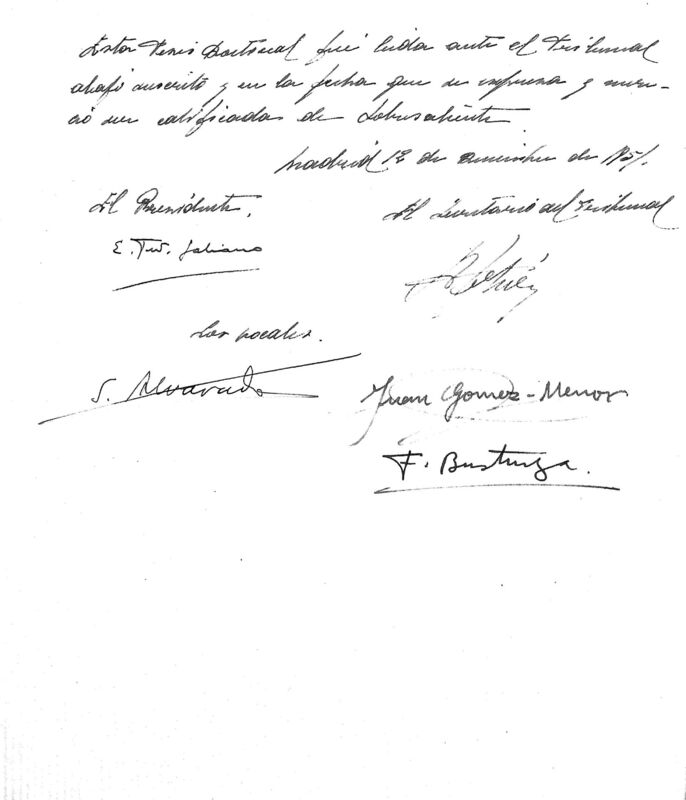 Esta Tesis Doctoral fué leida ante el Tribunal
abajo suscrito y en la fecha que se expresa y mere-
ció ser calificada de Sobresaliente
Madrid 12 de de 1951.
El Presidente,
El Secretario del Tribunal
E. Galiano
Los vocales.
S. Alvarado
Juan Gomez-Menor
F. Bustinza.